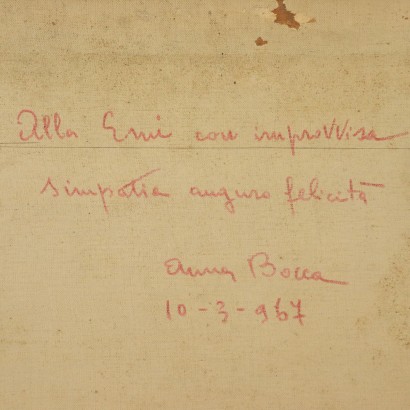 Alla Emi con improvvisa
simpatia auguro felicità
Anna Bocca
10-3-967